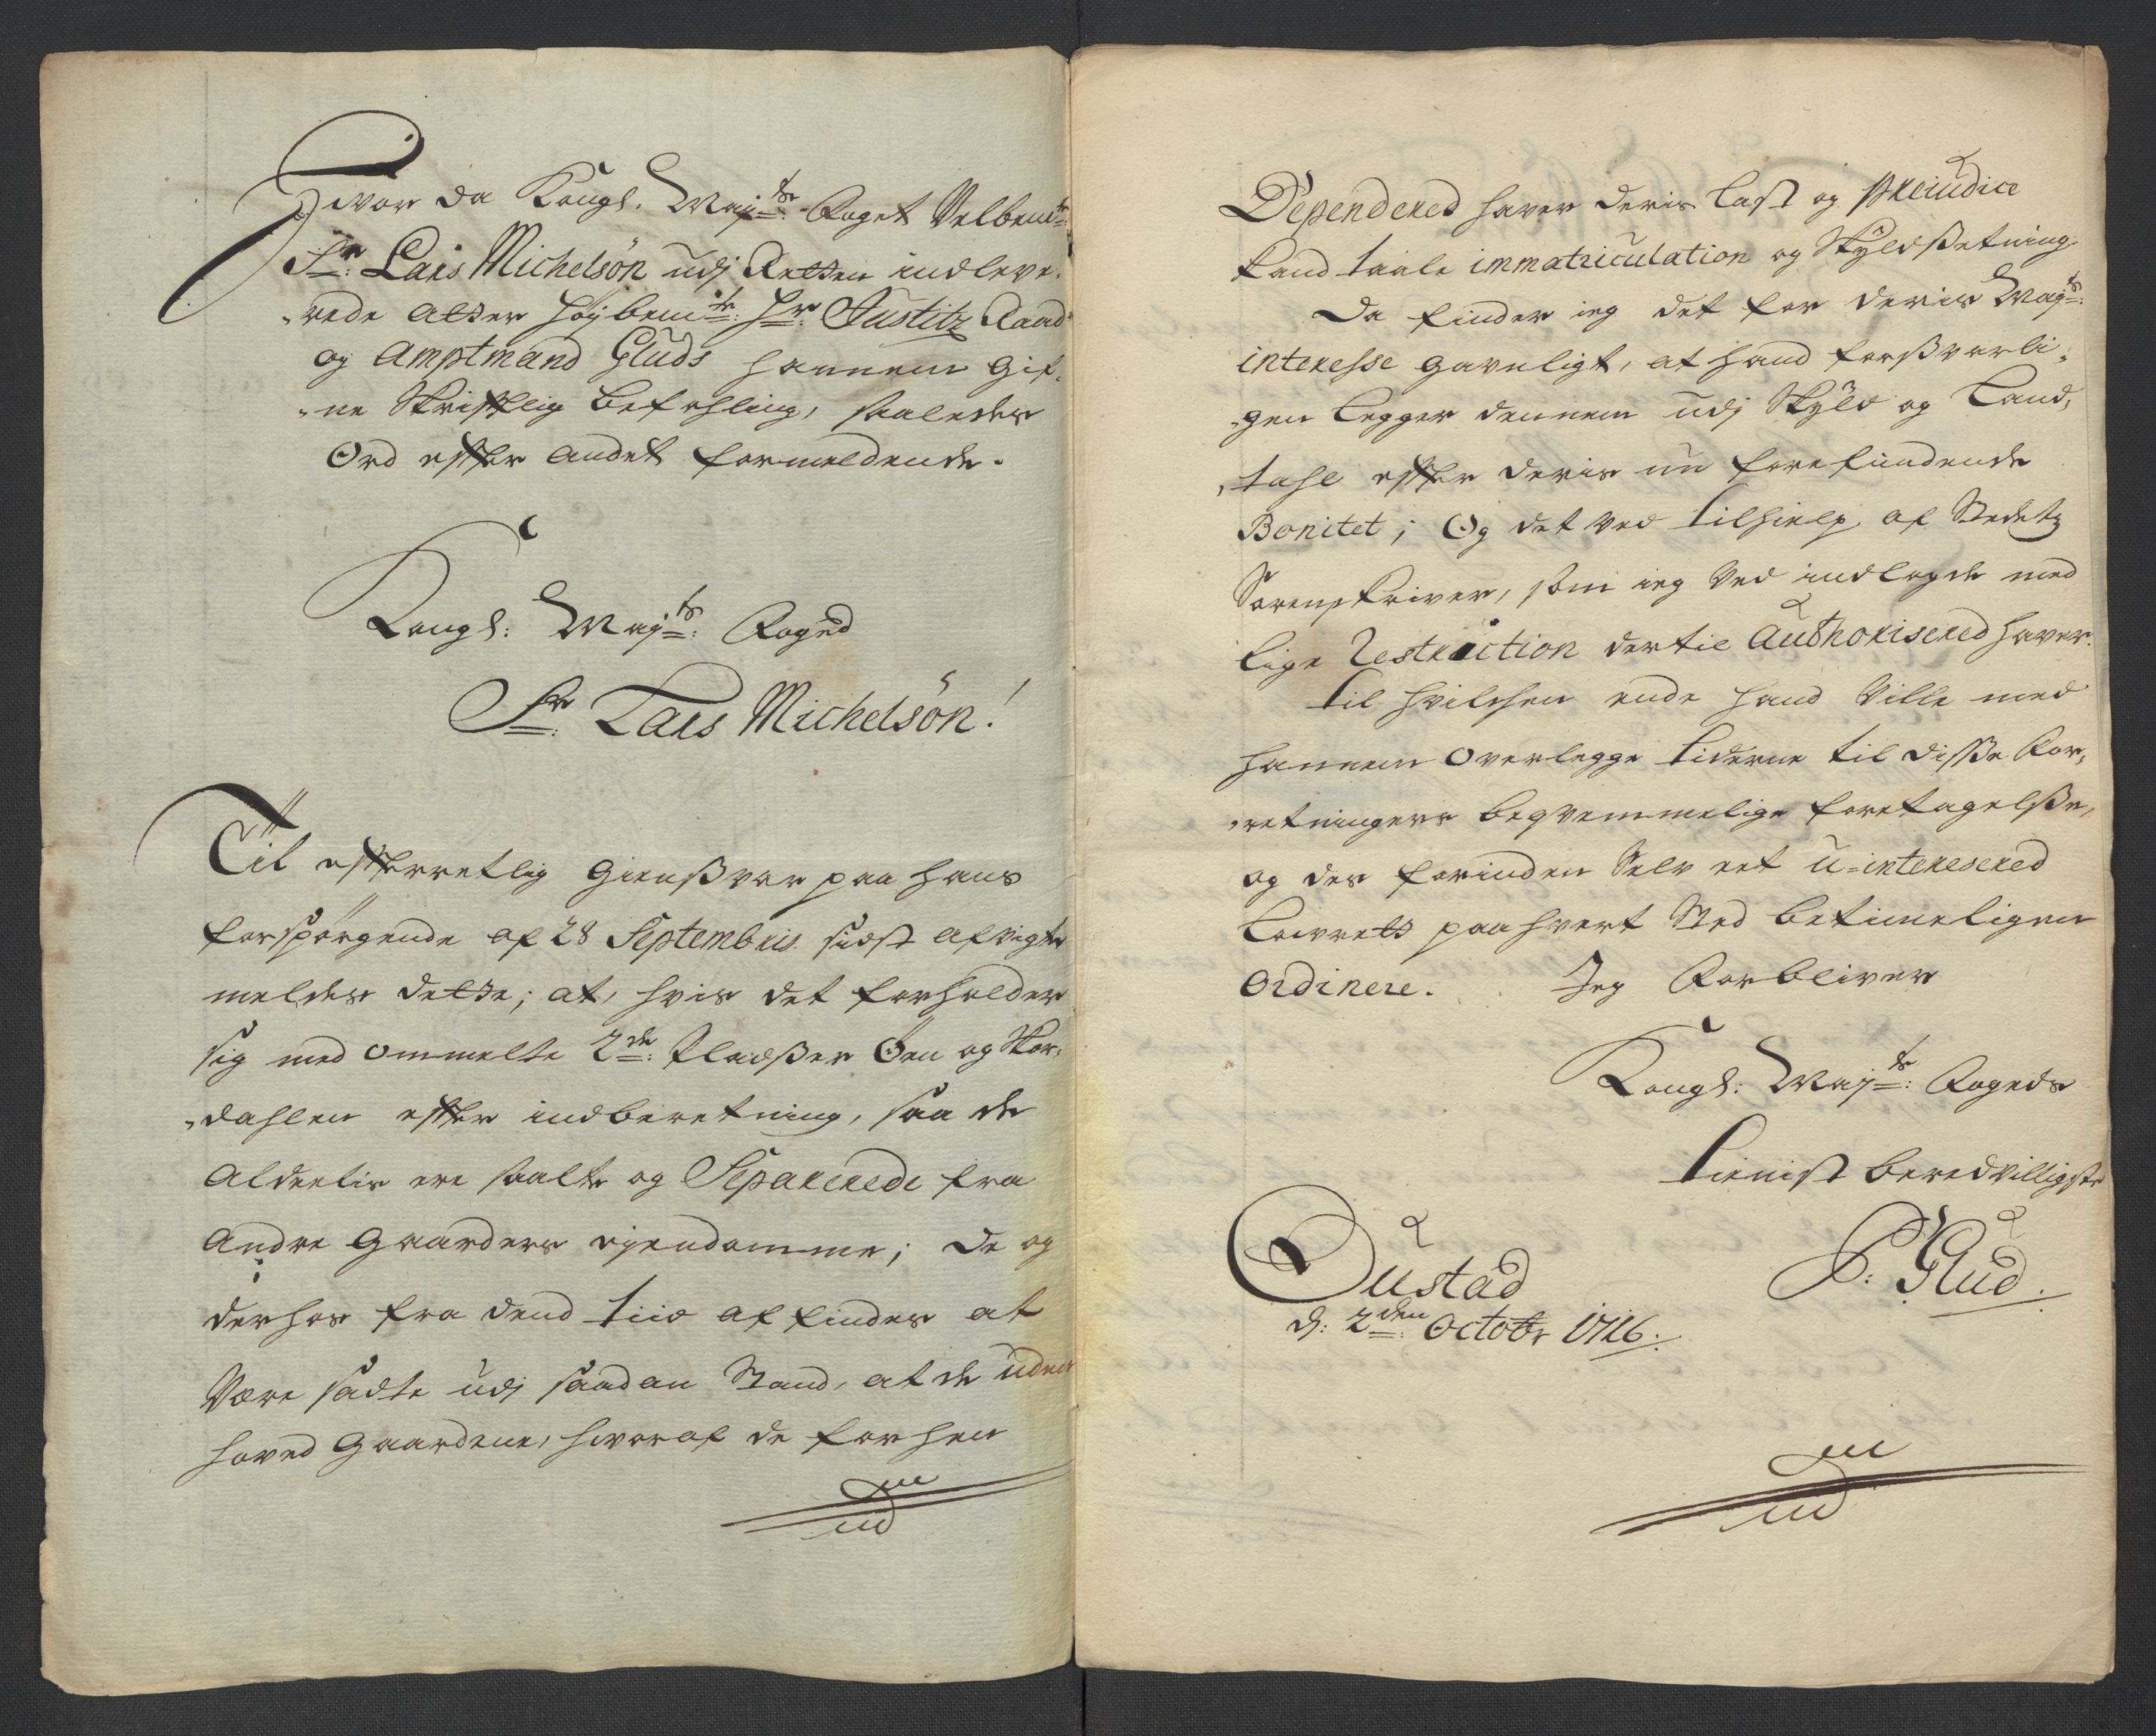 Hvor da Kongl. Maj:ts Foget Velbem:te
Sr: Lars Michelsön udj Retten indleve-
-rede Atter Høybem:te Hr Justitz Raad
og Amptmand Gluds hannem gif-
-ne Skriftlig befahling, saaledes
Ord efter andet formeldende.
Kongl: Maj:ts Foged
Sr: Lars Michelsön!
Til efterretlig Giensvar paa hans
forspörgende af 28 Septembris sidst afvigte
meldes dette; at, hvis det forholder
sig med ommelte 2de: Pladser Öen og Skor-
-dahlen efter indberetning, saa de
Aldeelis ere skilte og Separerede fra
Andre Gaarders ejendomme; de og
derhos fra dend tiid af findes at
være sadte udj saadan Stand, at de uden
hoved Gaardene, hvoraf de forhen
Dependered haver deris Last og Præiudice
kand taale immatriculation og Skyldsetning
Da finder ieg det for deris Maj:ts
interesse gavnligt, at hand forsvarli-
-gen legger dennem udj Skyld og Land-
-tahl efter deris nu forefindende
Bonitet; Og det ved tilhielp af Stedetz
Sorenskriver, som ieg ved indlagde med
lige Restriction dertil Authorisered haver.
til hvilchen ende hand ville med
hannem overlegge tiderne til disse For-
-retningers beqvemmelige foretagelse,
og der forinden Selv eet u-interesered
Lavrett paa hvert Sted betimeligen
Ordinere. Jeg Forbliver
Kongl: Maj:ts Fogeds
tienist beredvilligste
Bustad P: Glud.
d: 2den Octobr 1716.